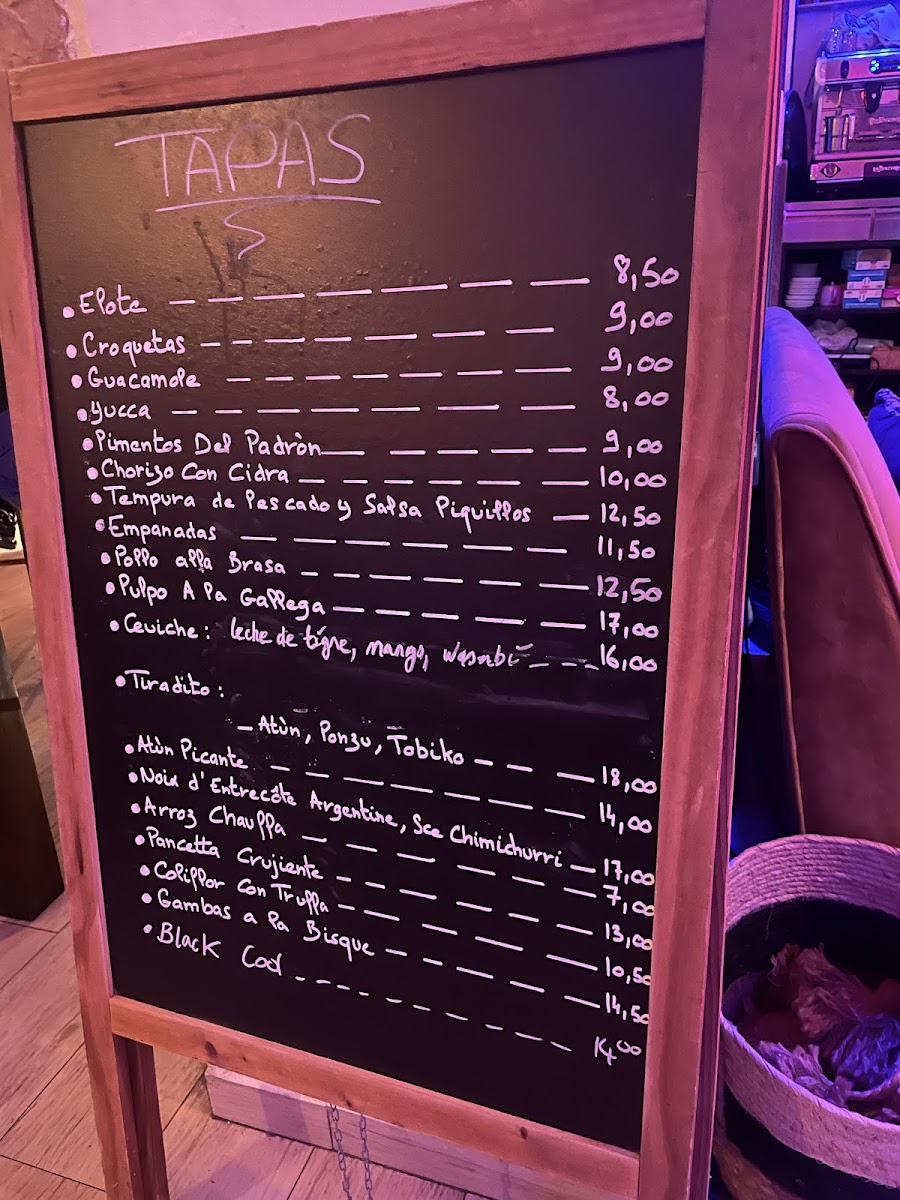 TAPAS
• Elote 8,50
• Croquetas 9,00
• Guacamole 9,00
• Yucca 8,00
• Pimentos Del Padròn 9,00
• Chorizo Con Cidra 10,00
• Tempura de Pescado y Salsa Piquillos 12,50
• Empanadas 11,50
• Pollo alla Brasa 12,50
• Pulpo A la Gallega 17,00
• Ceviche: leche de tigre, mango, wasabi 16,00
• Tiradito:
- Atùn, Ponzu, Tobiko 18,00
• Atùn Picante 14,00
• Noix d'Entrecôte Argentine, Sce Chimichurri 17,00
• Arroz Chauffa 7,00
• Pancetta Crujiente 13,00
• Coliflor Con Truffa 10,50
• Gambas a la Bisque 14,50
• Black Cod 14,00